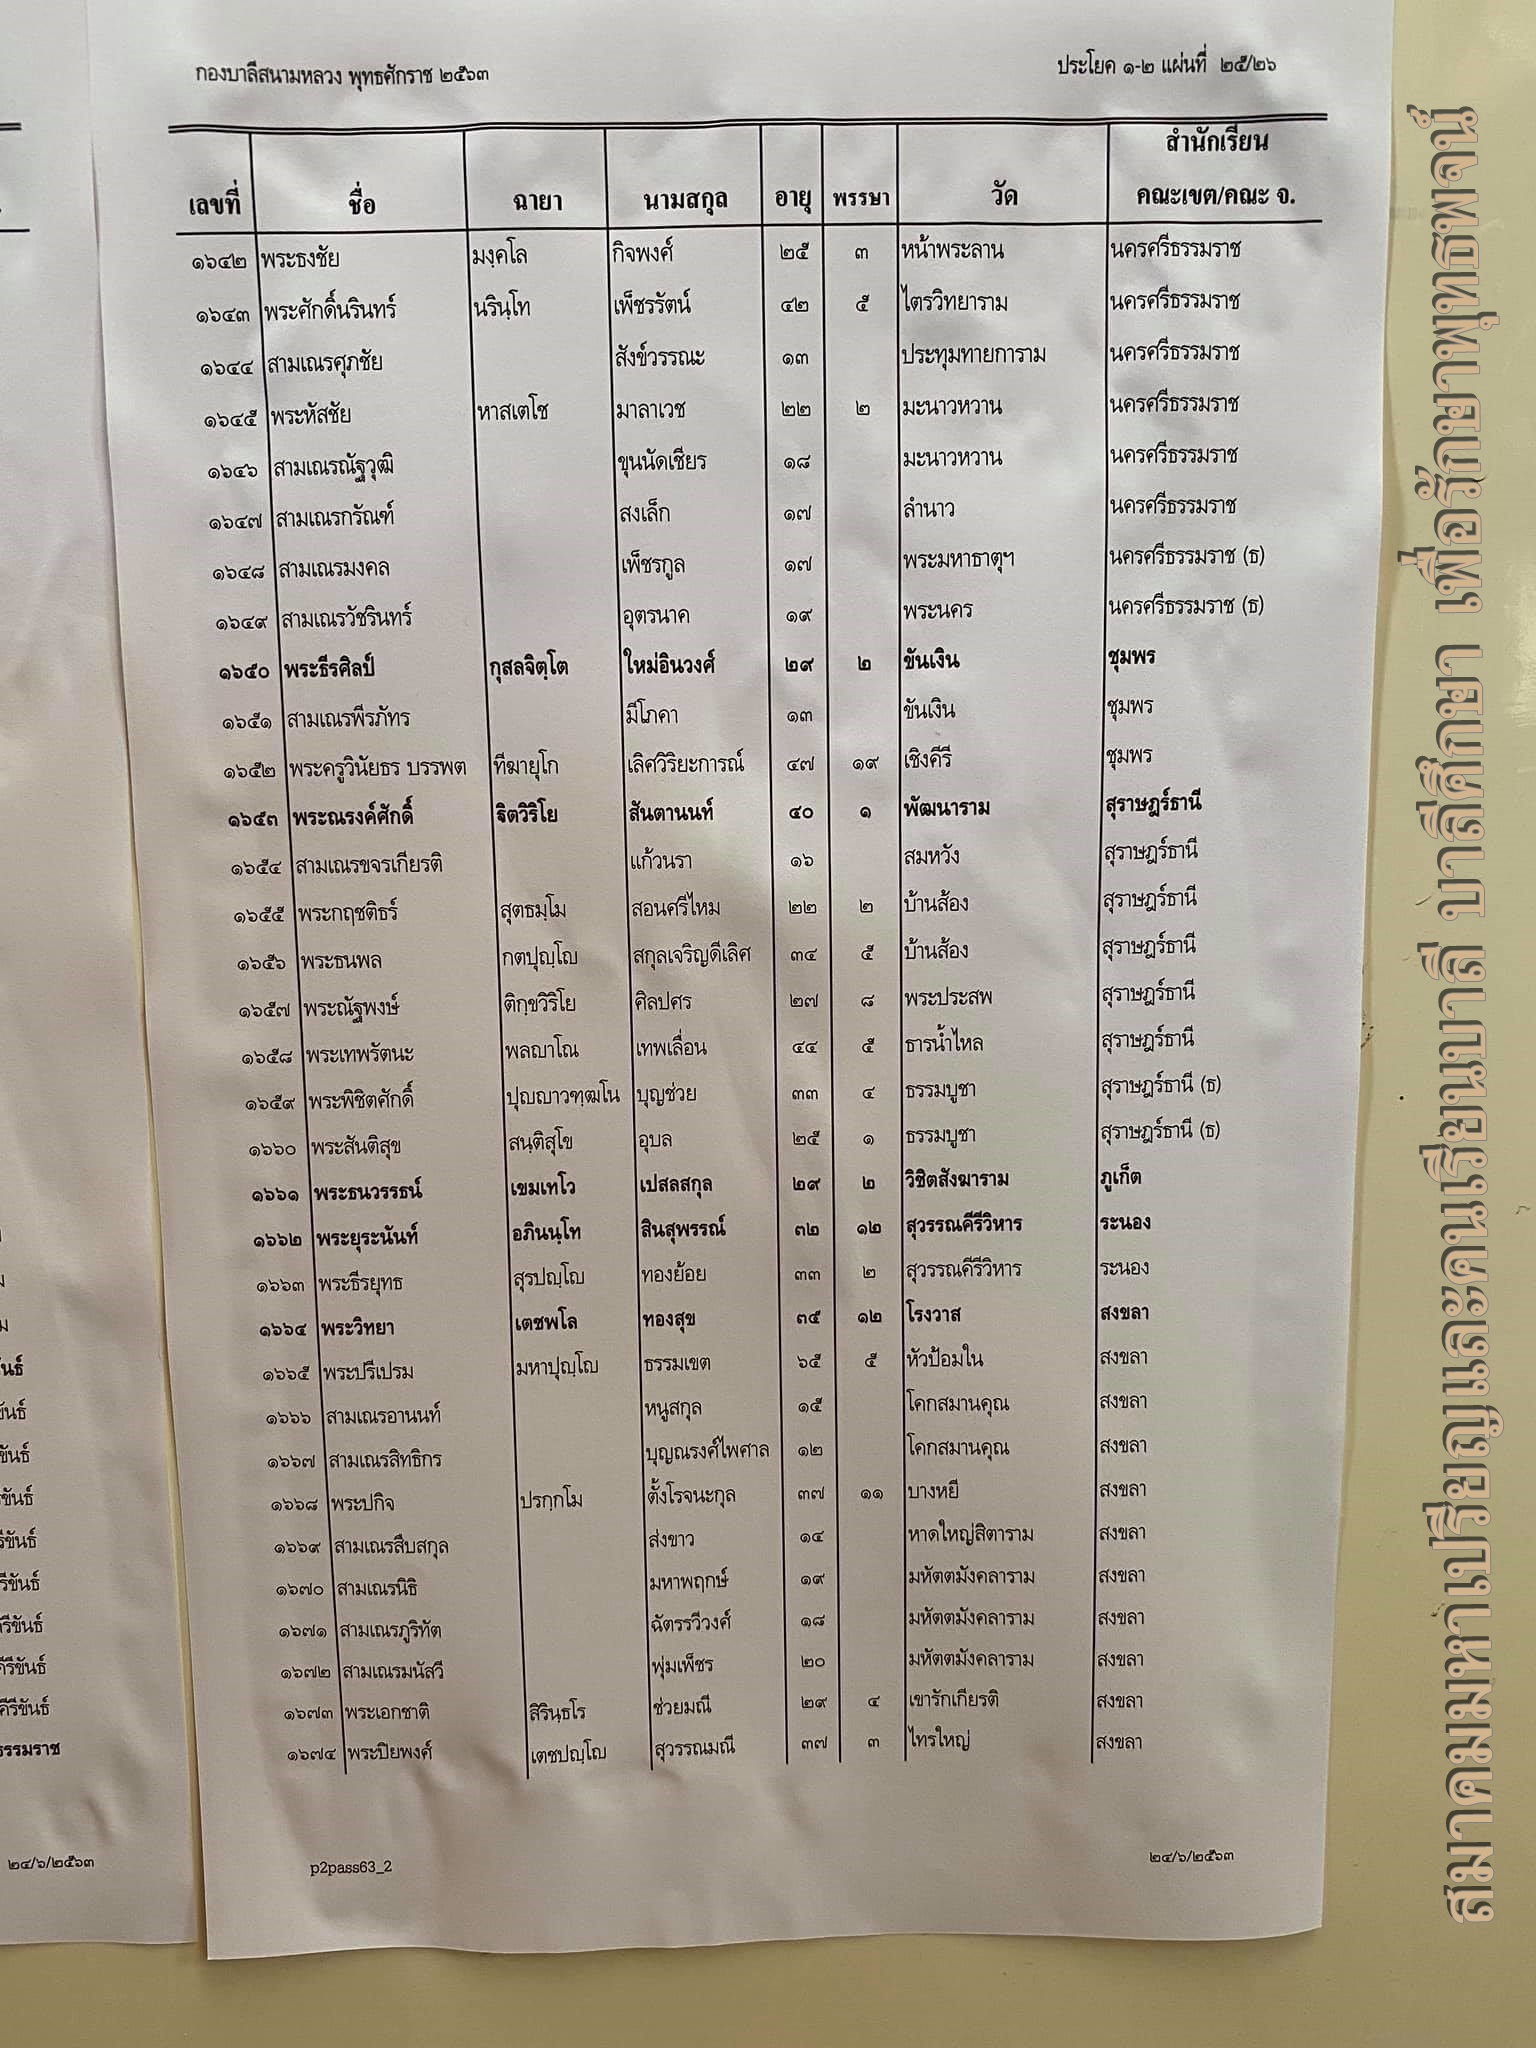 กองบาลีสนามหลวง พุทธศักราช ๒๕๖๓
ประโยค ๑-๒ แผ่นที่ ๒๕/๒๖
เลขที่ ชื่อ ฉายา นามสกุล อายุ พรรษา วัด สำนักเรียน คณะเขต/คณะ จ.
๑๖๔๒ พระธงชัย มงฺคโล กิจพงศ์ ๒๕ ๓ หน้าพระลาน นครศรีธรรมราช
๑๖๔๓ พระศักดิ์นรินทร์ นรินฺโท เพ็ชรรัตน์ ๔๒ ๕ ไตรวิทยาราม นครศรีธรรมราช
๑๖๔๔ สามเณรศุภชัย สังข์วรรณะ ๑๓ ประทุมทายการาม นครศรีธรรมราช
๑๖๔๕ พระหัสชัย หาสเตโช มาลาเวช ๒๒ ๒ มะนาวหวาน นครศรีธรรมราช
๑๖๔๖ สามเณรณัฐวุฒิ ขุนนัดเชียร ๑๘ มะนาวหวาน นครศรีธรรมราช
๑๖๔๗ สามเณรกรัณฑ์ สงเล็ก ๑๗ ลำนาว นครศรีธรรมราช
๑๖๔๘ สามเณรมงคล เพ็ชรกูล ๑๗ พระมหาธาตุฯ นครศรีธรรมราช (ธ)
๑๖๔๙ สามเณรวัชรินทร์ อุตรนาค ๑๙ พระนคร นครศรีธรรมราช (ธ)
๑๖๕๐ พระธีรศิลป์ กุสลจิตฺโต ใหม่อินวงศ์ ๒๙ ๒ ขันเงิน ชุมพร
๑๖๕๑ สามเณรพีรภัทร มีโภคา ๑๓ ขันเงิน ชุมพร
๑๖๕๒ พระครูวินัยธร บรรพต ทีฆายุโก เลิศวิริยะการณ์ ๔๗ ๑๙ เชิงคีรี ชุมพร
๑๖๕๓ พระณรงค์ศักดิ์ ฐิตวิริโย สันตานนท์ ๔๐ ๑ พัฒนาราม สุราษฎร์ธานี
๑๖๕๔ สามเณรขจรเกียรติ แก้วนรา ๑๖ สมหวัง สุราษฎร์ธานี
๑๖๕๕ พระกฤชติธร์ สุตธมฺโม สอนศรีไหม ๒๒ ๒ บ้านส้อง สุราษฎร์ธานี
๑๖๕๖ พระธนพล กตปุญฺโญ สกุลเจริญดีเลิศ ๓๔ ๕ บ้านส้อง สุราษฎร์ธานี
๑๖๕๗ พระณัฐพงษ์ ติกฺขวิริโย ศิลปศร ๒๗ ๘ พระประสพ สุราษฎร์ธานี
๑๖๕๘ พระเทพรัตนะ พลญาโณ เทพเลื่อน ๔๔ ๕ ธารน้ำไหล สุราษฎร์ธานี
๑๖๕๙ พระพิชิตศักดิ์ ปุญญาวฑฺฒโน บุญช่วย ๓๓ ๔ ธรรมบูชา สุราษฎร์ธานี (ธ)
๑๖๖๐ พระสันติสุข สนฺติสุโข อุบล ๒๕ ๑ ธรรมบูชา สุราษฎร์ธานี (ธ)
๑๖๖๑ พระธนวรรธน์ เขมเทโว เปสลสกุล ๒๙ ๒ วิชิตสังฆาราม ภูเก็ต
๑๖๖๒ พระยุระนันท์ อภินนฺโท สินสุพรรณ์ ๓๒ ๑๒ สุวรรณคีรีวิหาร ระนอง
๑๖๖๓ พระธีรยุทธ สุรปญฺโญ ทองย้อย ๓๓ ๒ สุวรรณคีรีวิหาร ระนอง
๑๖๖๔ พระวิทยา เตชพโล ทองสุข ๓๕ ๑๒ โรงวาส สงขลา
๑๖๖๕ พระปรีเปรม มหาปุญฺโญ ธรรมเขต ๖๕ ๕ หัวป้อมใน สงขลา
๑๖๖๖ สามเณรอานนท์ หนูสกุล ๑๕ โคกสมานคุณ สงขลา
๑๖๖๗ สามเณรสิทธิกร บุญณรงค์ไพศาล ๑๒ โคกสมานคุณ สงขลา
๑๖๖๘ พระปกิจ ปรกฺกโม ตั้งโรจนะกุล ๓๗ ๑๑ บางหยี สงขลา
๑๖๖๙ สามเณรสืบสกุล ส่งขาว ๑๔ หาดใหญ่สิตาราม สงขลา
๑๖๗๐ สามเณรนิธิ มหาพฤกษ์ ๑๙ มหัตตมังคลาราม สงขลา
๑๖๗๑ สามเณรภูริทัต ฉัตรรวีวงศ์ ๑๘ มหัตตมังคลาราม สงขลา
๑๖๗๒ สามเณรมนัสวี พุ่มเพ็ชร ๒๐ มหัตตมังคลาราม สงขลา
๑๖๗๓ พระเอกชาติ สิรินฺธโร ช่วยมณี ๒๙ ๔ เขารักเกียรติ สงขลา
๑๖๗๔ พระปิยพงศ์ เตชปญฺโญ สุวรรณมณี ๓๗ ๓ ไทรใหญ่ สงขลา
p2pass63_2
๒๔/๖/๒๕๖๓
๒๔/๖/๒๕๖๓
สมาคมมหาเปรียญและคนเรียนบาลี บาลีศึกษา เพื่อรักษาพุทธพจน์